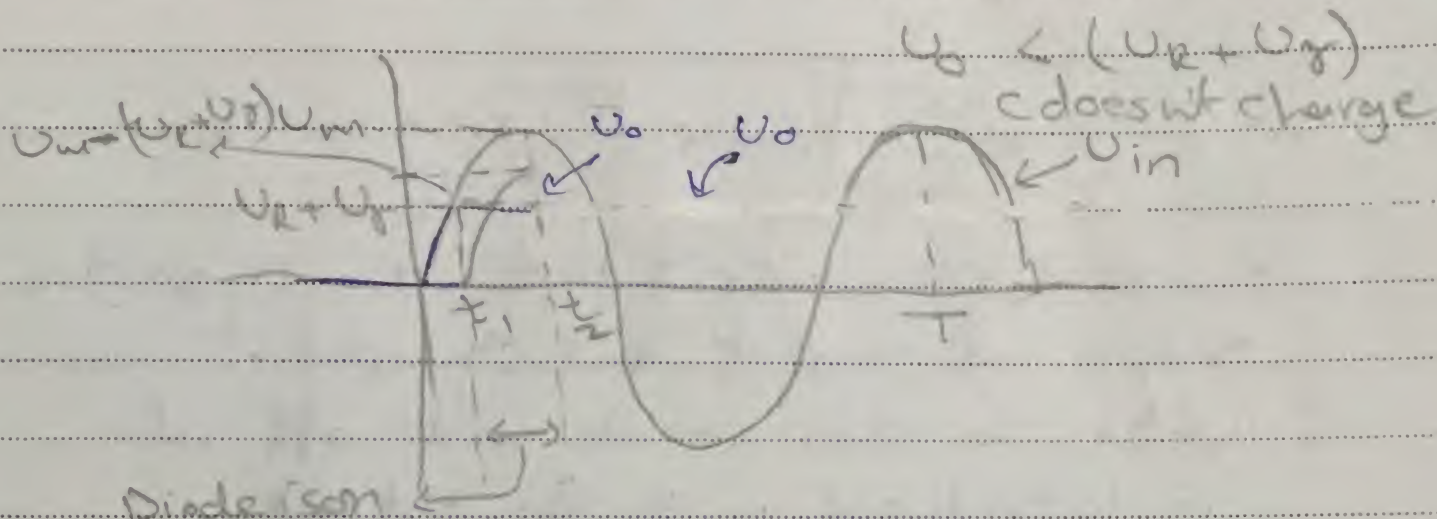 U₀ < (U_R + U_γ)
C doesn't charge
U_m - (U_R + U_γ) U_m
U₀
U₀
U_in
U_R + U_γ
t₁
t₂
T
Diode is on